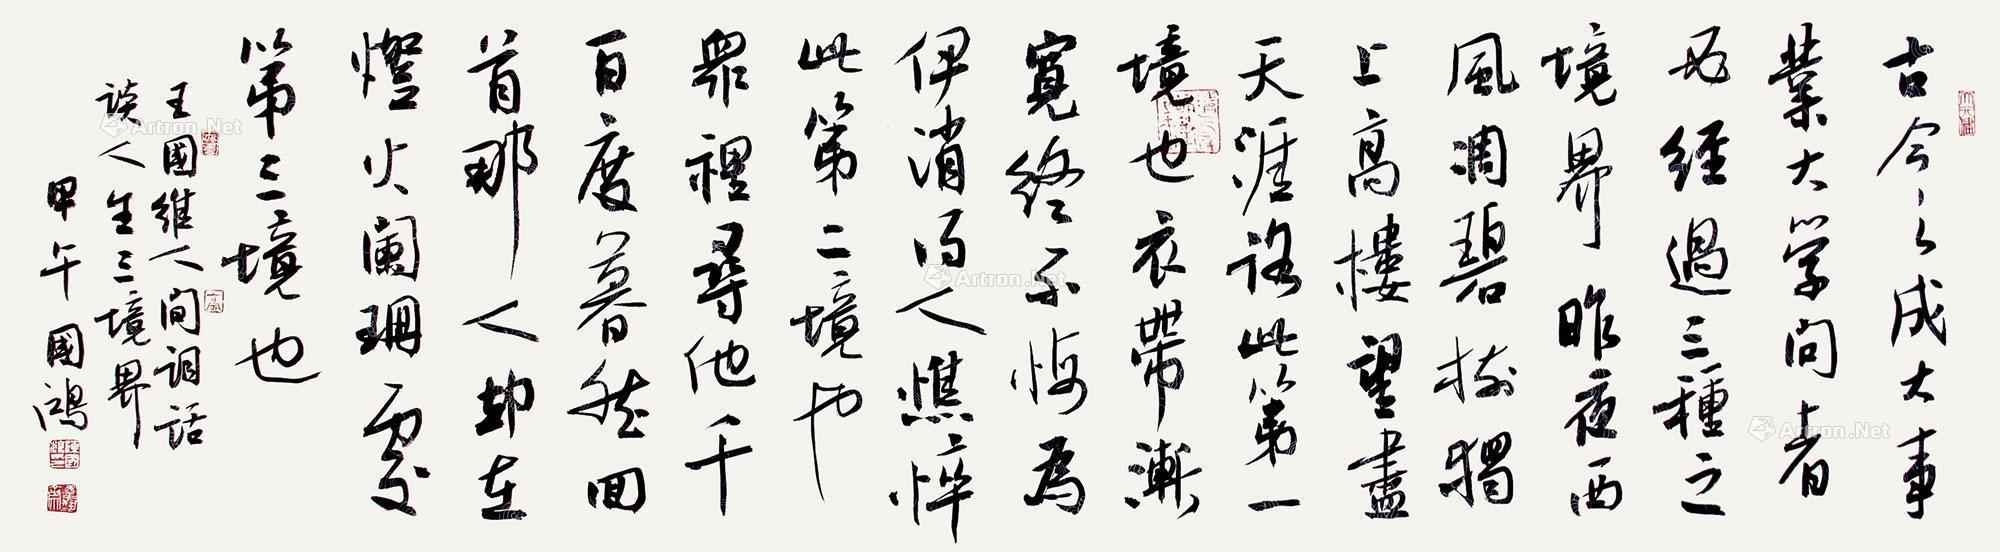 古今之成大事
業大学问者
必經過三種之
境界昨夜西
風凋碧樹獨
上高樓望盡
天涯路此第一
境也衣帶漸
寬終不悔為
伊消得人憔悴
此第二境也
眾裡尋他千
百度驀然回
首那人却在
燈火闌珊處
第三境也
王國維人间詞話
談人生三境界
甲午國鴻
Artron.Net
Artron.Net
Artron.Net
Artron.Net